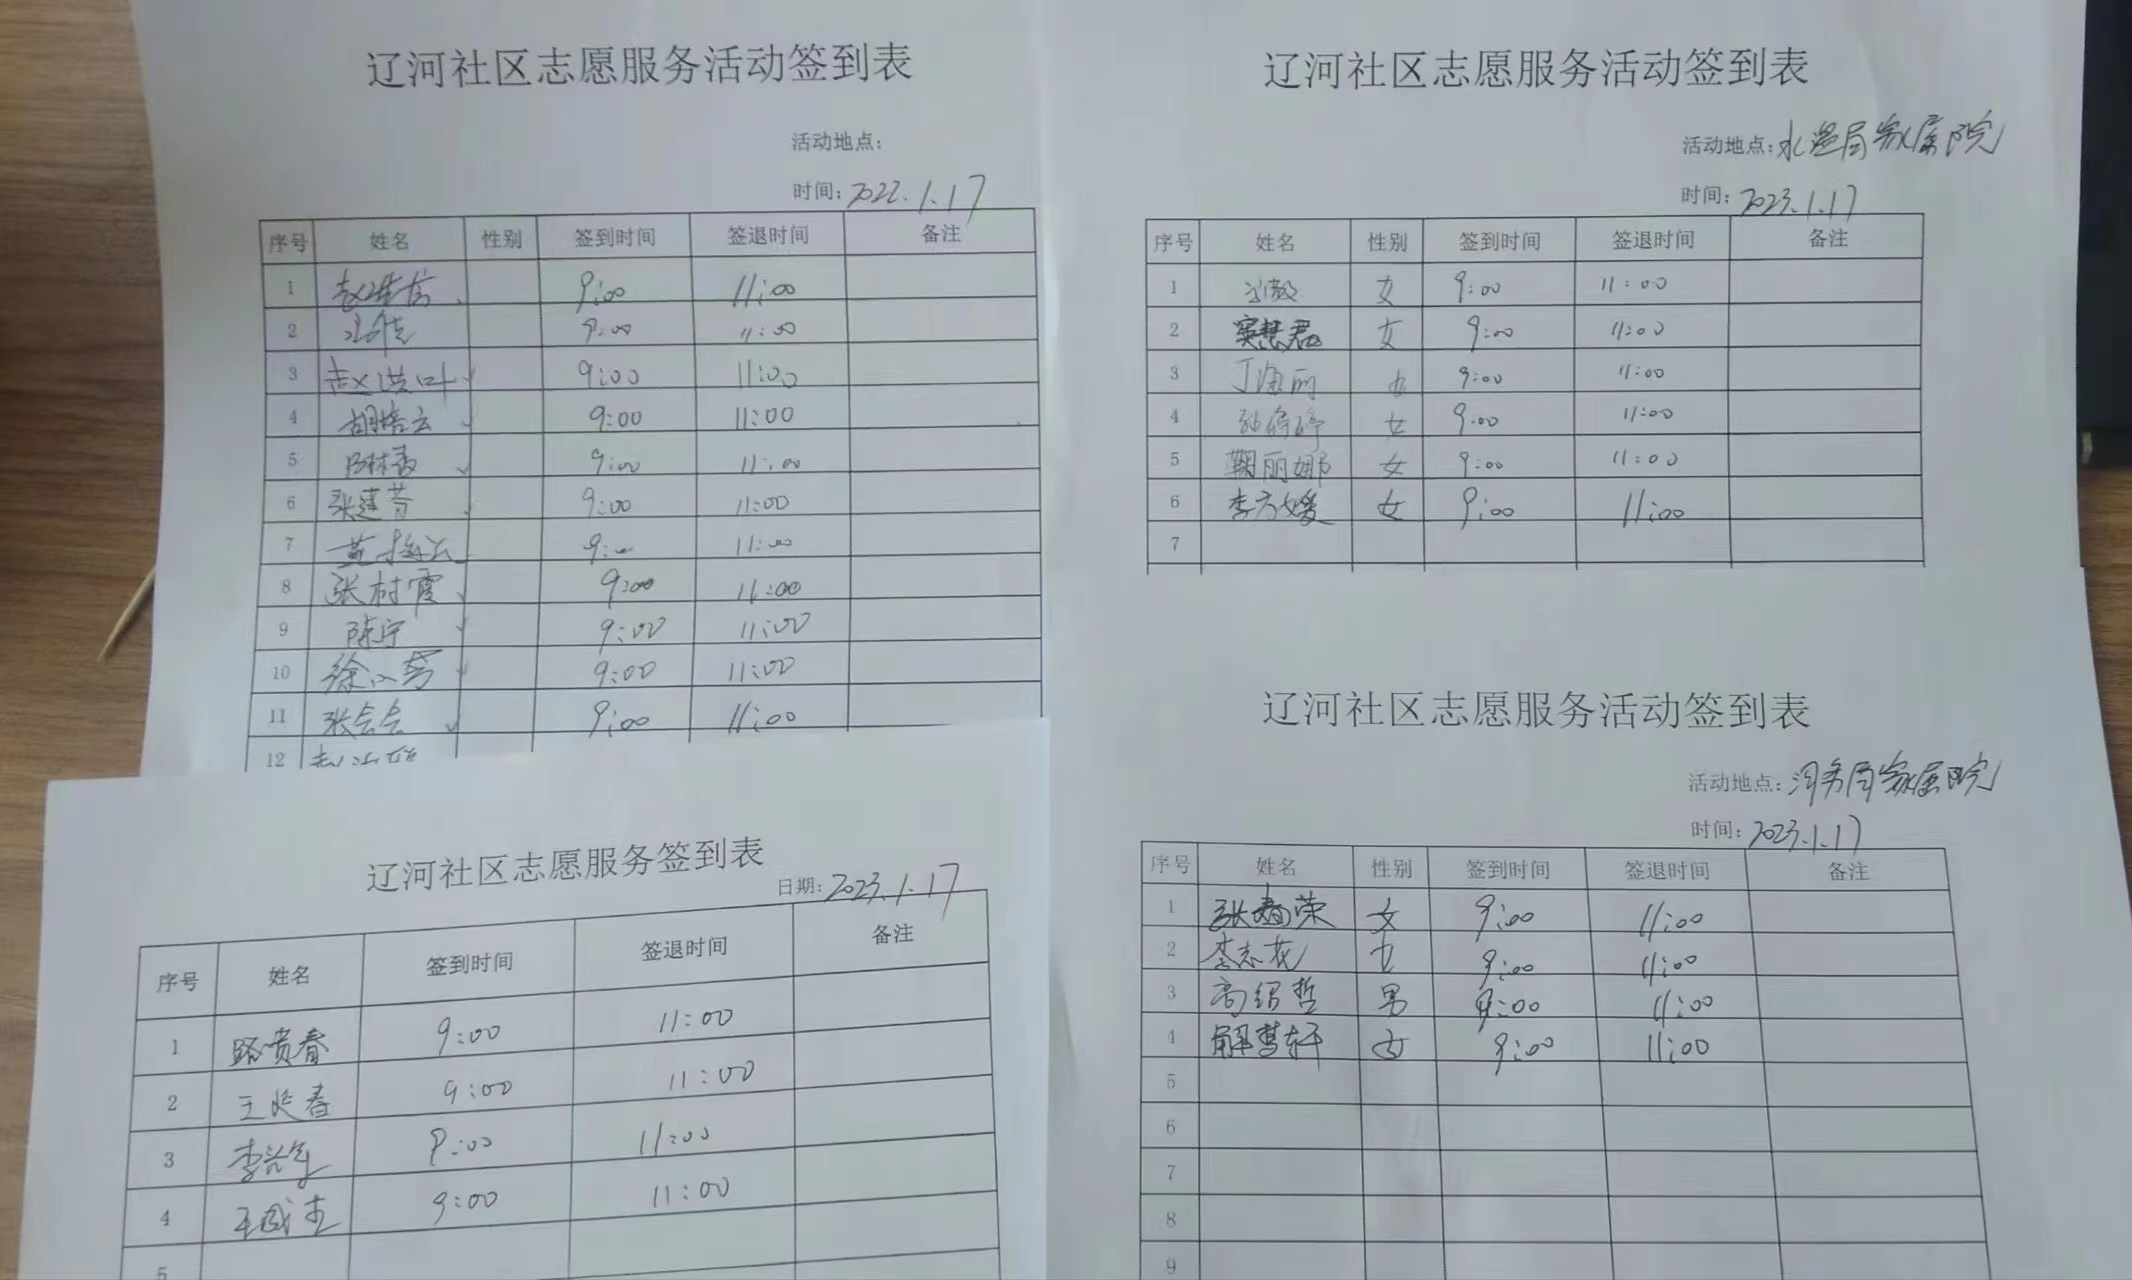 辽河社区志愿服务活动签到表
活动地点：
时间：2022.1.17
序号 姓名 性别 签到时间 签退时间 备注
1 9:00 11:00
2 9:00 11:00
3 9:00 11:00
4 9:00 11:00
5 9:00 11:00
6 张莲芳 9:00 11:00
7 9:00 11:00
8 张树霞 9:00 11:00
9 陈宁 9:00 11:00
10 9:00 11:00
11 张会会 9:00 11:00
12
辽河社区志愿服务活动签到表
活动地点：水运局家属院
时间：2023.1.17
序号 姓名 性别 签到时间 签退时间 备注
1 女 9:00 11:00
2 窦慧君 女 9:00 11:00
3 丁海丽 女 9:00 11:00
4 女 9:00 11:00
5 鞠丽娜 女 9:00 11:00
6 李方媛 女 9:00 11:00
7
辽河社区志愿服务签到表
日期：2023.1.17
序号 姓名 签到时间 签退时间 备注
1 路贵春 9:00 11:00
2 9:00 11:00
3 9:00 11:00
4 9:00 11:00
5
辽河社区志愿服务活动签到表
活动地点：河务局家属院
时间：2023.1.17
序号 姓名 性别 签到时间 签退时间 备注
1 张春荣 女 9:00 11:00
2 李志花 女 9:00 11:00
3 高绍哲 男 9:00 11:00
4 解梦轩 女 9:00 11:00
5
6
7
8
9